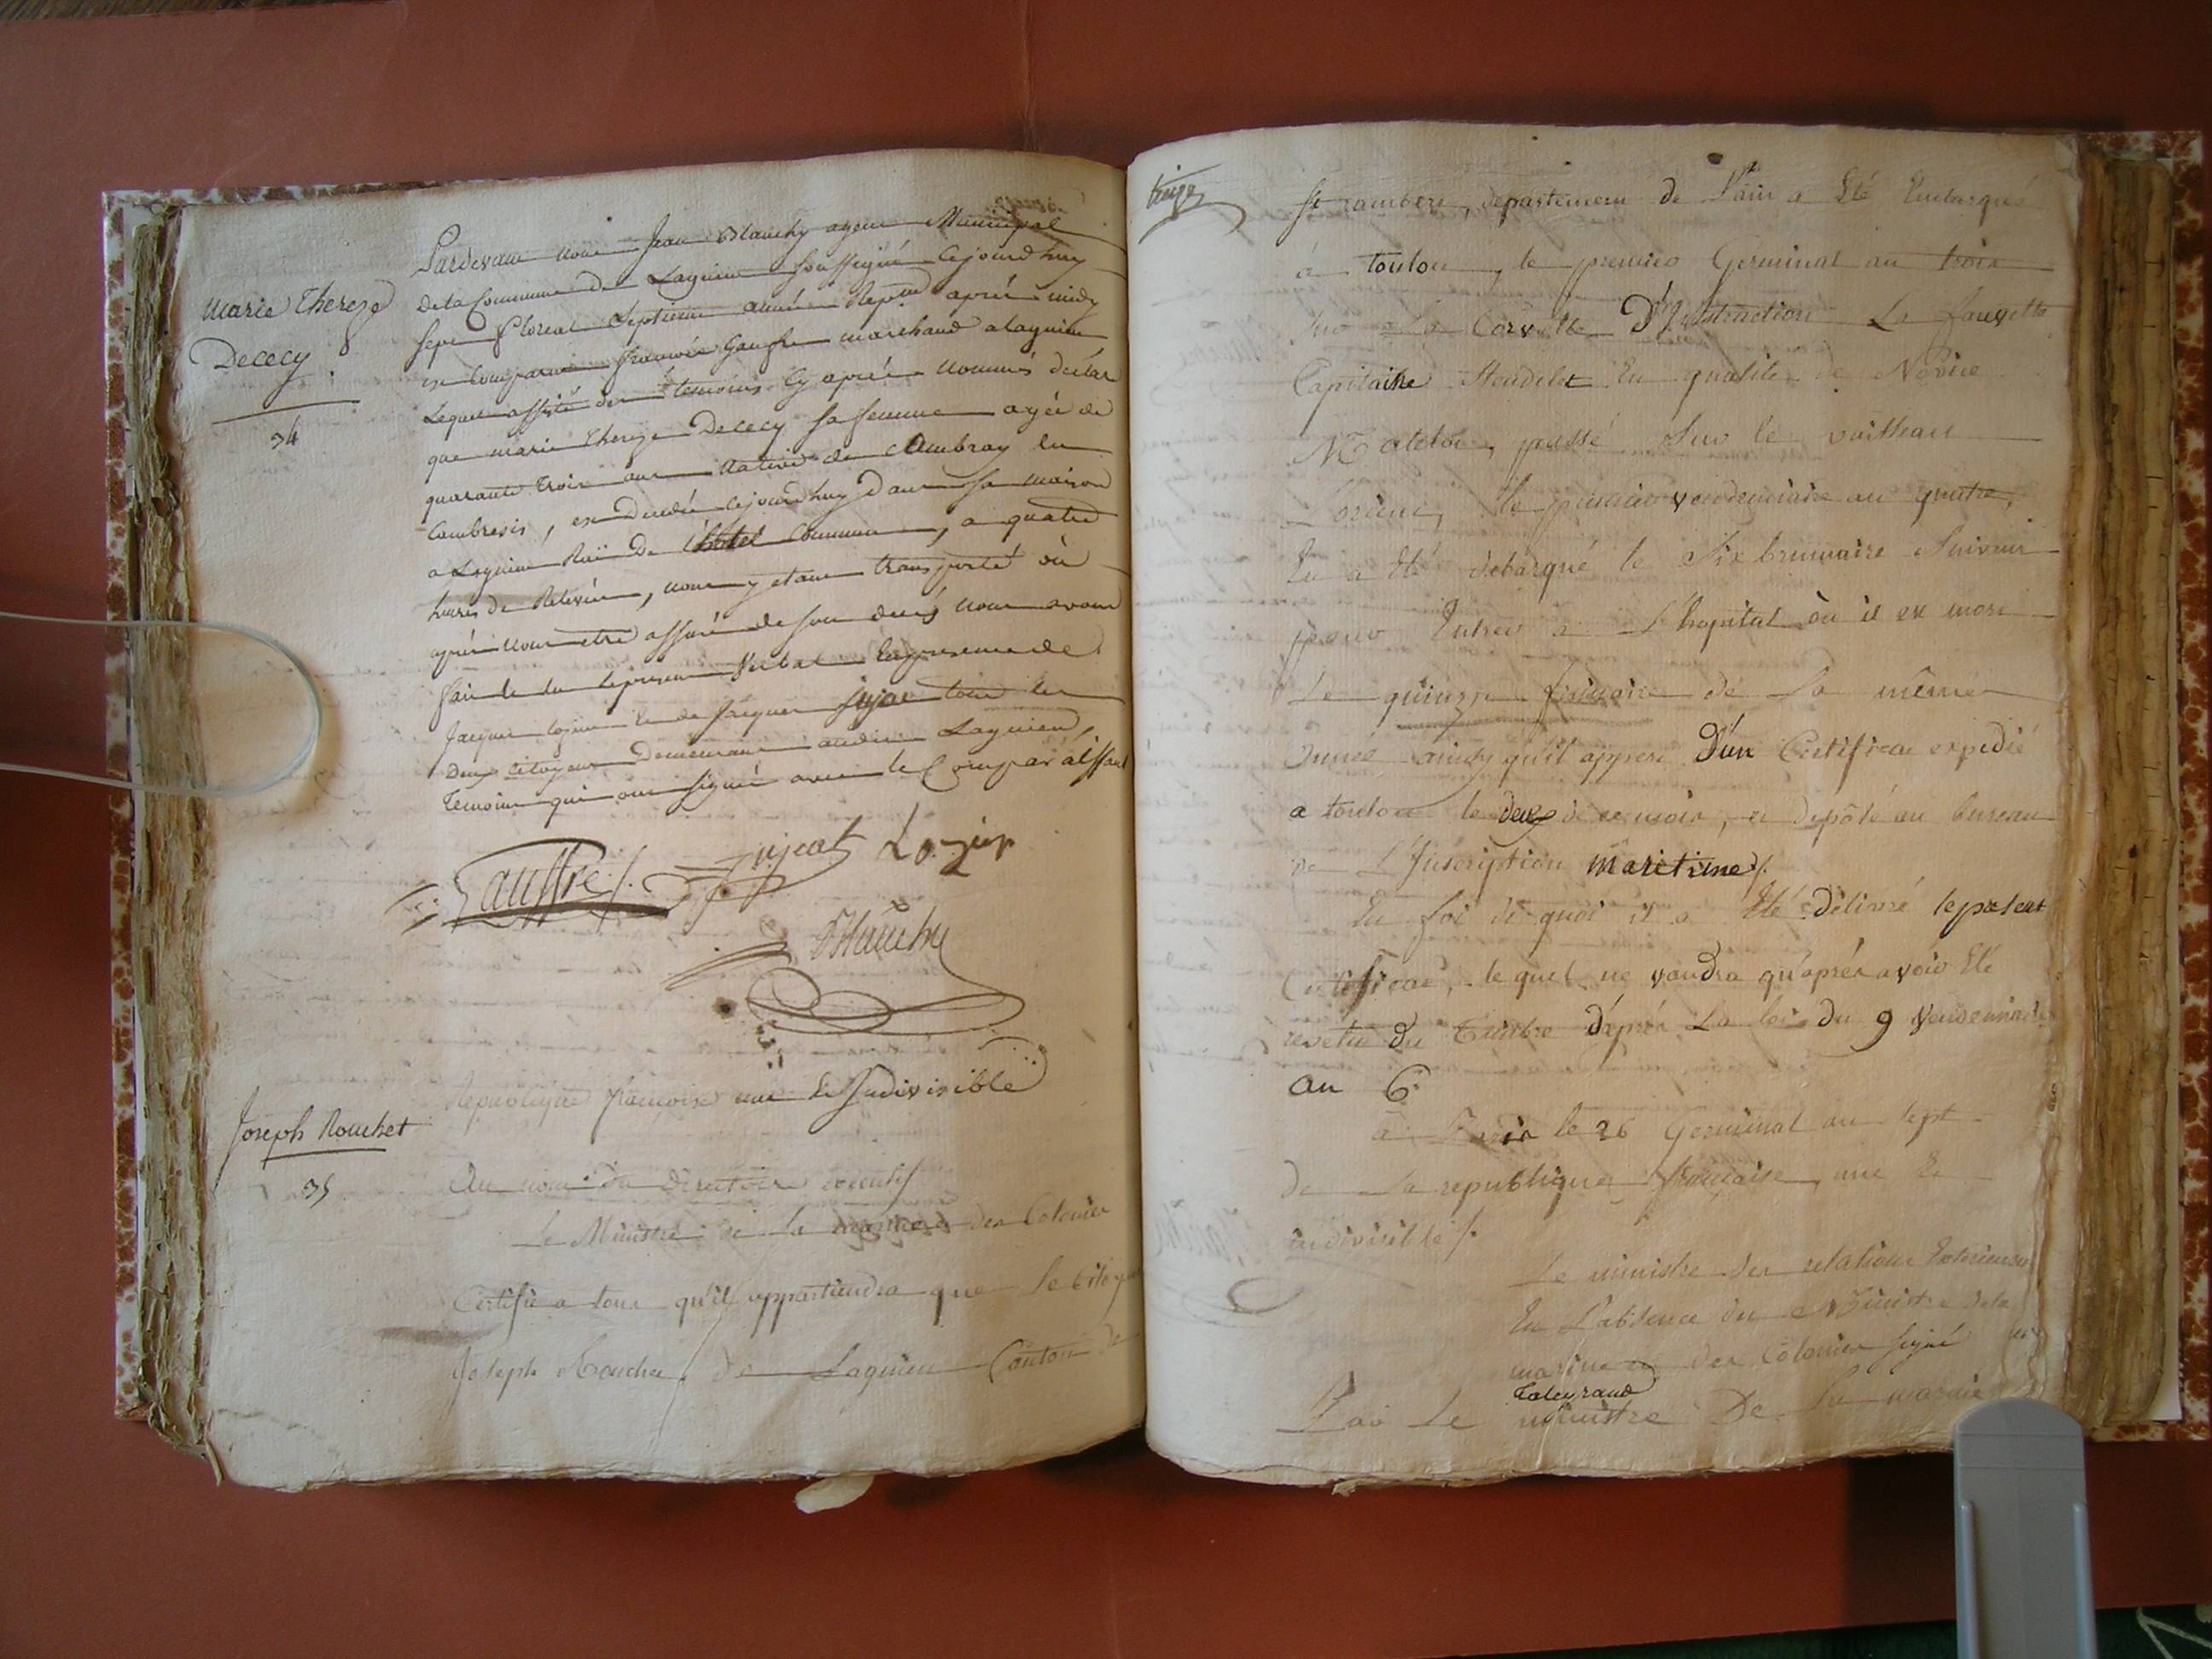 Marie Thereze
Dececy
34
Pardevant nous Jean Blanchy agent Municipal
de la Commune de Lagnieu soussigné cejourd'huy
sept floreal septieme année Rep.ne après midy
est comparu françois Gauffre marchand a lagnieu
Lequel assisté des temoins cy après nommés déclar
que marie thereze Dececy sa femme agée de
quarante trois ans native de Cambray en
Cambresis, est Decedée cejourd'huy dans sa maison
a Lagnieu Rue De l'hotel Commun, a quatre
heures de Relevée, nous y etant transporté où
après nous etre assuré de son decès nous avons
fait le presen Verbal En presence de
Jacques lozier et de Jacques Jujat tous les
deux citoyens Demeurant audit Lagnieu,
temoins qui ont signé avec le Comparaissant
Gauffre Jujeat Lozier
Blanchy
Joseph Rouchet
35
Republique françoise une et Indivisible
Au nom du directoire executif
Le Ministre de la marine et des Colonies
Certifie a tous qu'il appartiendra que le Citoyen
Joseph Rouchet, de Lagnieu Canton de
treize
St rambert, departement de l'ain a Eté Embarqué
á toulon, le premier Germinal an trois
sur La Corvette D'Instruction La fauvette
Capitaine Heudelet En qualité de Novice
Matelot, passé sur le vaisseau
L'orient, le premier vendemiaire an quatre,
En a Eté débarqué le Six brumaire Suivant
pour Entrer a L'hopital où il est mort
Le quinze frimaire de La même
année ainsy qu'il appert D'un Certificat expedié
a toulon le deux de ce mois, et depôsé au bureau
de L'Inscription maritime /.
En foi de quoi il a Eté délivré le present
Certificat, le quel ne vaudra qu'après avoir Eté
revetu du Timbre d'après La loi du 9 Vendemiaire
an 6.
à Paris le 26 Germinal an sept
de La republique française, une Et
indivisible /.
Le ministre des relations Exterieures
En L'absence du Ministre de la
marine et des Colonies signé
Taleyrand
Par Le ministre De la marine